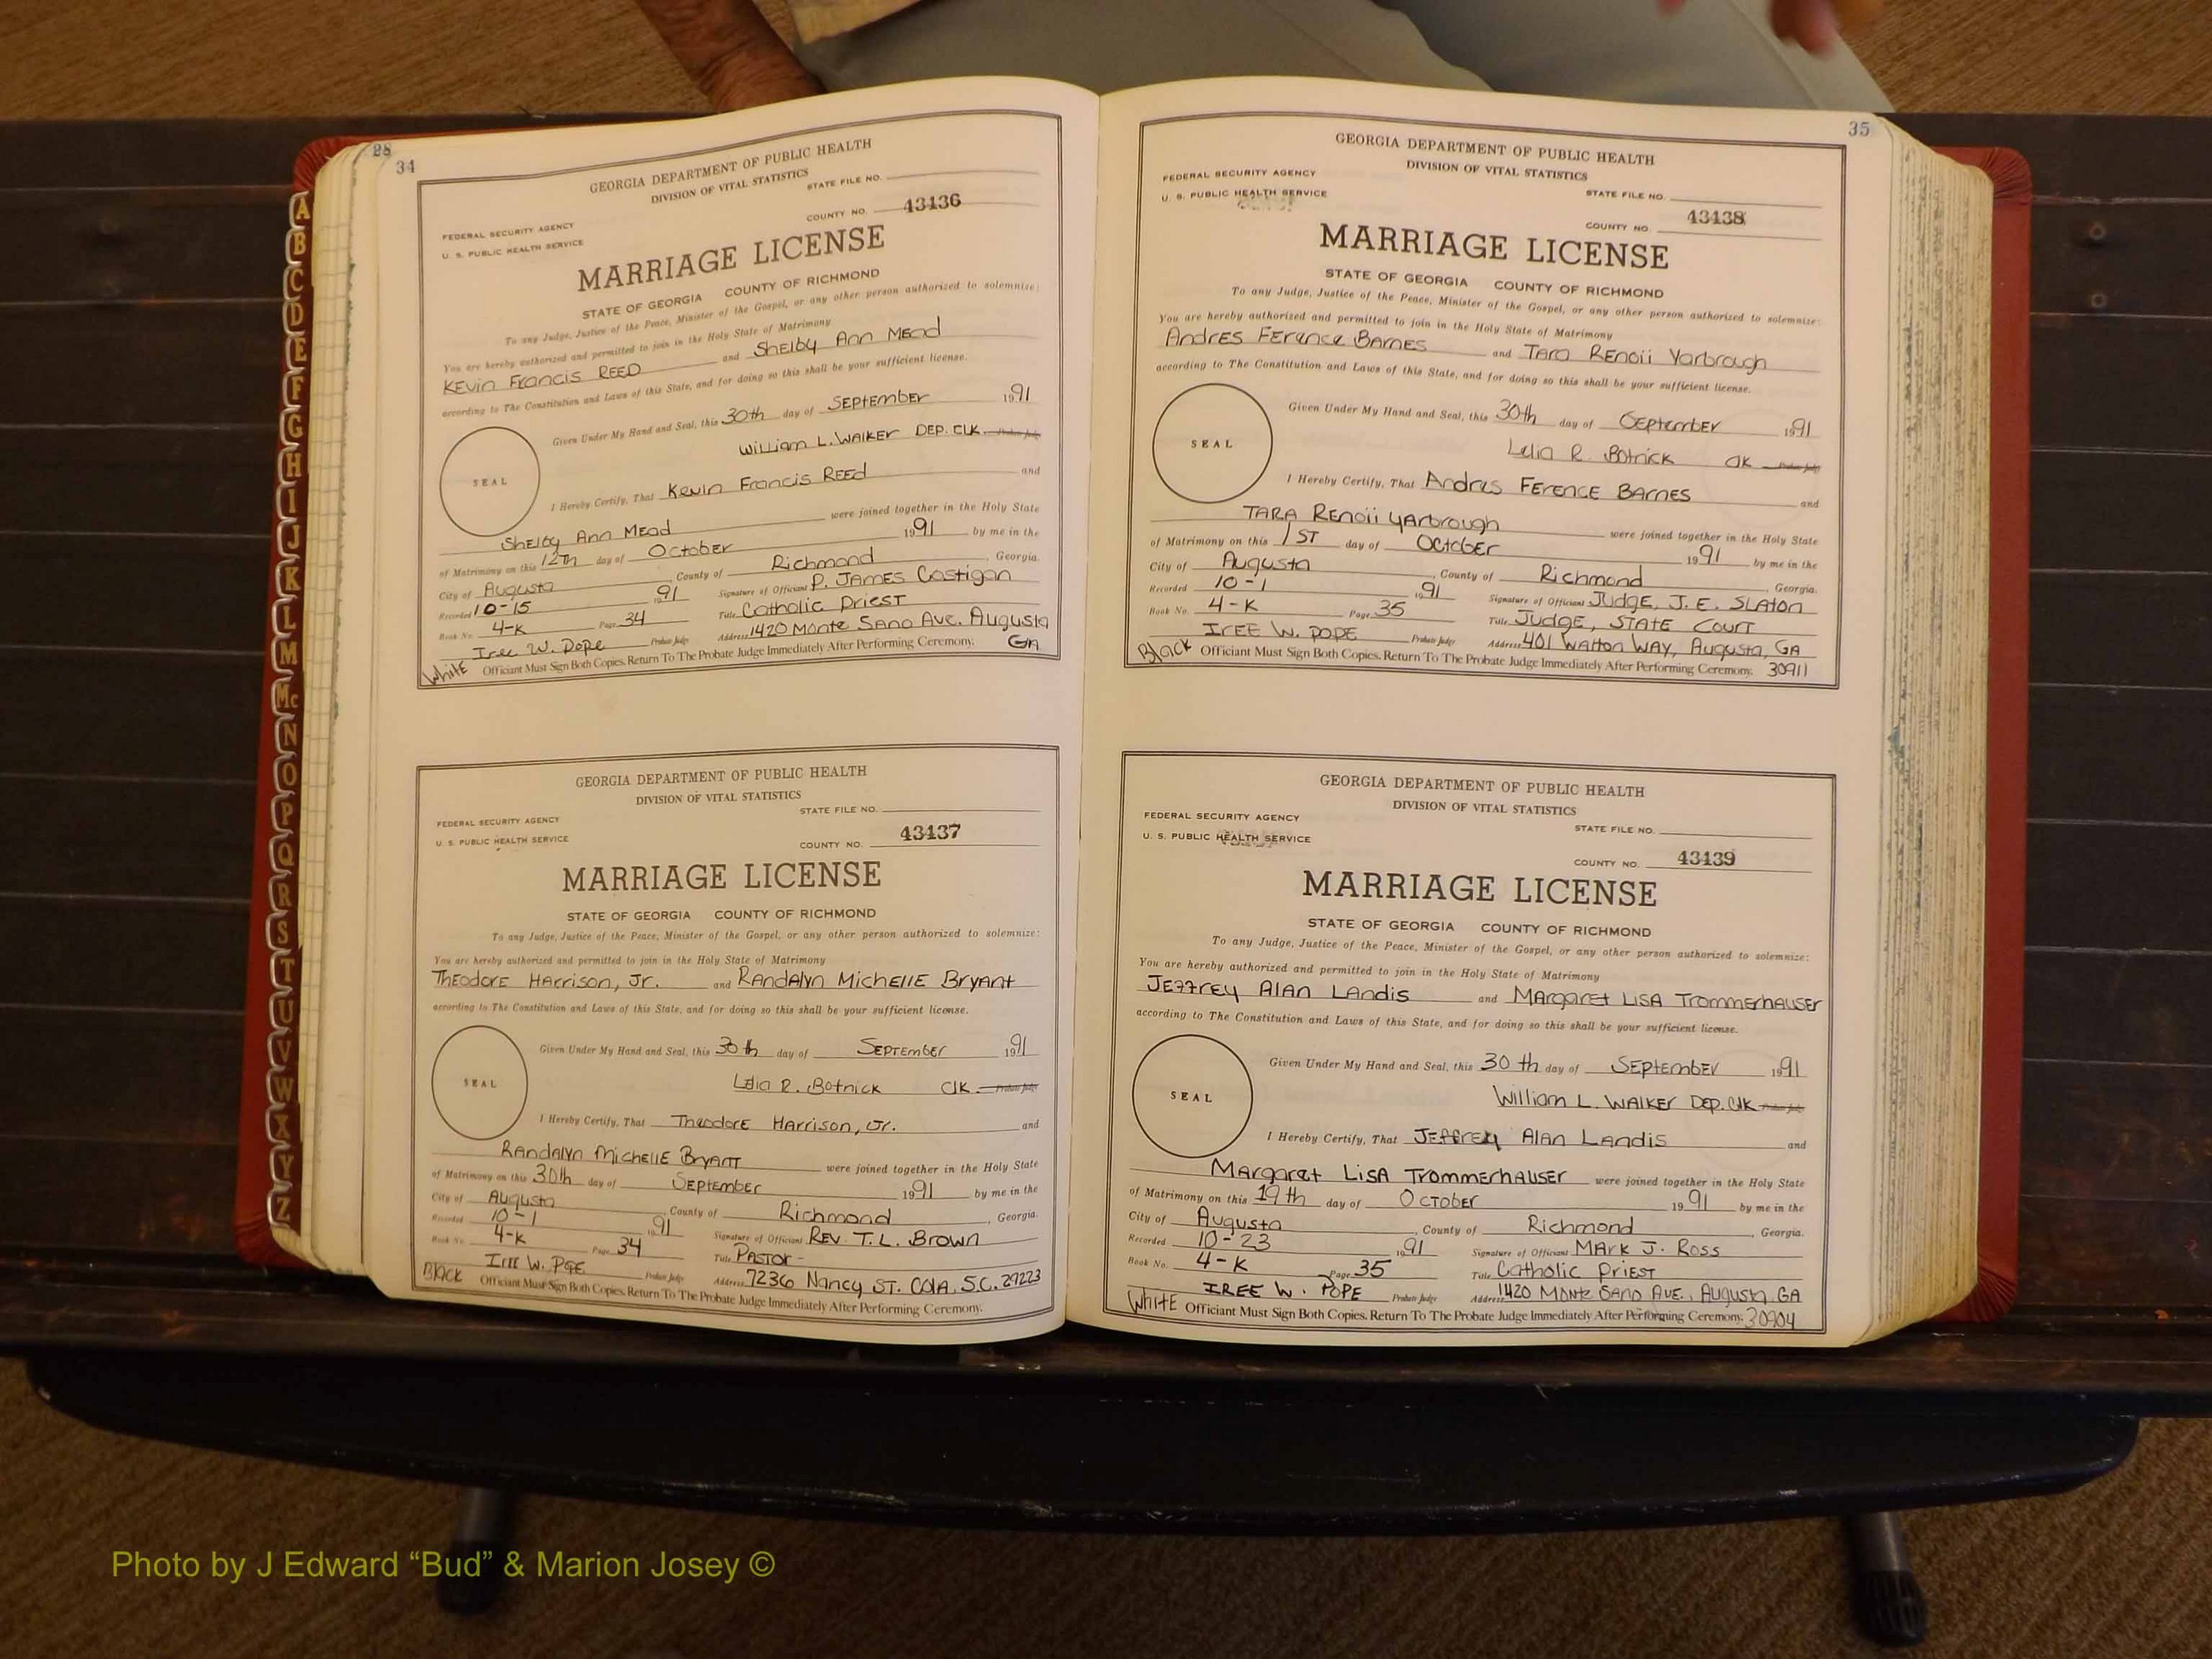 A
B
C
D
E
F
G
H
I
J
K
L
M
Mc
N
O
P
Q
R
S
T
U
V
W
X
Y
Z
28
34
GEORGIA DEPARTMENT OF PUBLIC HEALTH
DIVISION OF VITAL STATISTICS
STATE FILE NO.
FEDERAL SECURITY AGENCY
U. S. PUBLIC HEALTH SERVICE
COUNTY NO. 43436
MARRIAGE LICENSE
STATE OF GEORGIA COUNTY OF RICHMOND
To any Judge, Justice of the Peace, Minister of the Gospel, or any other person authorized to solemnize:
You are hereby authorized and permitted to join in the Holy State of Matrimony
Kevin Francis Reed and Shelby Ann Mead
according to The Constitution and Laws of this State, and for doing so this shall be your sufficient license.
Given Under My Hand and Seal, this 30th day of September 1991
SEAL
William L. Walker Dep. Clk. Probate Judge
I Hereby Certify, That Kevin Francis Reed and
Shelby Ann Mead were joined together in the Holy State
of Matrimony on this 12th day of October 1991 by me in the
City of Augusta, County of Richmond, Georgia.
Recorded 10-15 1991 Signature of Officiant P. James Costigan
Book No. 4-K Page 34 Title Catholic Priest
Iree W. Pope Probate Judge Address 1420 Monte Sano Ave. Augusta
White Officiant Must Sign Both Copies. Return To The Probate Judge Immediately After Performing Ceremony. GA
GEORGIA DEPARTMENT OF PUBLIC HEALTH
DIVISION OF VITAL STATISTICS
STATE FILE NO.
FEDERAL SECURITY AGENCY
U. S. PUBLIC HEALTH SERVICE
COUNTY NO. 43437
MARRIAGE LICENSE
STATE OF GEORGIA COUNTY OF RICHMOND
To any Judge, Justice of the Peace, Minister of the Gospel, or any other person authorized to solemnize:
You are hereby authorized and permitted to join in the Holy State of Matrimony
Theodore Harrison, Jr. and Randalyn Michelle Bryant
according to The Constitution and Laws of this State, and for doing so this shall be your sufficient license.
Given Under My Hand and Seal, this 30th day of September 1991
SEAL
Lelia R. Botnick Clk. Probate Judge
I Hereby Certify, That Theodore Harrison, Jr. and
Randalyn Michelle Bryant were joined together in the Holy State
of Matrimony on this 30th day of September 1991 by me in the
City of Augusta, County of Richmond, Georgia.
Recorded 10-1 1991 Signature of Officiant Rev. T. L. Brown
Book No. 4-K Page 34 Title Pastor-
Iree W. Pope Probate Judge Address 7236 Nancy St. Cola, S.C. 29223
Black Officiant Must Sign Both Copies. Return To The Probate Judge Immediately After Performing Ceremony.
35
GEORGIA DEPARTMENT OF PUBLIC HEALTH
DIVISION OF VITAL STATISTICS
FEDERAL SECURITY AGENCY
U. S. PUBLIC HEALTH SERVICE
STATE FILE NO.
COUNTY NO. 43438
MARRIAGE LICENSE
STATE OF GEORGIA COUNTY OF RICHMOND
To any Judge, Justice of the Peace, Minister of the Gospel, or any other person authorized to solemnize:
You are hereby authorized and permitted to join in the Holy State of Matrimony
Andres Ference Barnes and Tara Renoii Yarbrough
according to The Constitution and Laws of this State, and for doing so this shall be your sufficient license.
Given Under My Hand and Seal, this 30th day of September 1991
SEAL
Lelia R. Botnick Clk Probate Judge
I Hereby Certify, That Andres Ference Barnes and
Tara Renoii Yarbrough were joined together in the Holy State
of Matrimony on this 1st day of October 1991 by me in the
City of Augusta, County of Richmond, Georgia.
Recorded 10-1 1991 Signature of Officiant Judge, J. E. Slaton
Book No. 4-K Page 35 Title Judge, State Court
Iree W. Pope Probate Judge Address 401 Walton Way, Augusta, GA
Black Officiant Must Sign Both Copies. Return To The Probate Judge Immediately After Performing Ceremony. 30911
GEORGIA DEPARTMENT OF PUBLIC HEALTH
DIVISION OF VITAL STATISTICS
FEDERAL SECURITY AGENCY
U. S. PUBLIC HEALTH SERVICE
STATE FILE NO.
COUNTY NO. 43439
MARRIAGE LICENSE
STATE OF GEORGIA COUNTY OF RICHMOND
To any Judge, Justice of the Peace, Minister of the Gospel, or any other person authorized to solemnize:
You are hereby authorized and permitted to join in the Holy State of Matrimony
Jeffrey Alan Landis and Margaret Lisa Trommerhauser
according to The Constitution and Laws of this State, and for doing so this shall be your sufficient license.
Given Under My Hand and Seal, this 30th day of September 1991
SEAL
William L. Walker Dep. Clk Probate Judge
I Hereby Certify, That Jeffrey Alan Landis and
Margaret Lisa Trommerhauser were joined together in the Holy State
of Matrimony on this 19th day of October 1991 by me in the
City of Augusta, County of Richmond, Georgia.
Recorded 10-23 1991 Signature of Officiant Mark J. Ross
Book No. 4-K Page 35 Title Catholic Priest
Iree W. Pope Probate Judge Address 1420 Monte Sano Ave., Augusta, GA
White Officiant Must Sign Both Copies. Return To The Probate Judge Immediately After Performing Ceremony. 30904
Photo by J Edward “Bud” & Marion Josey ©